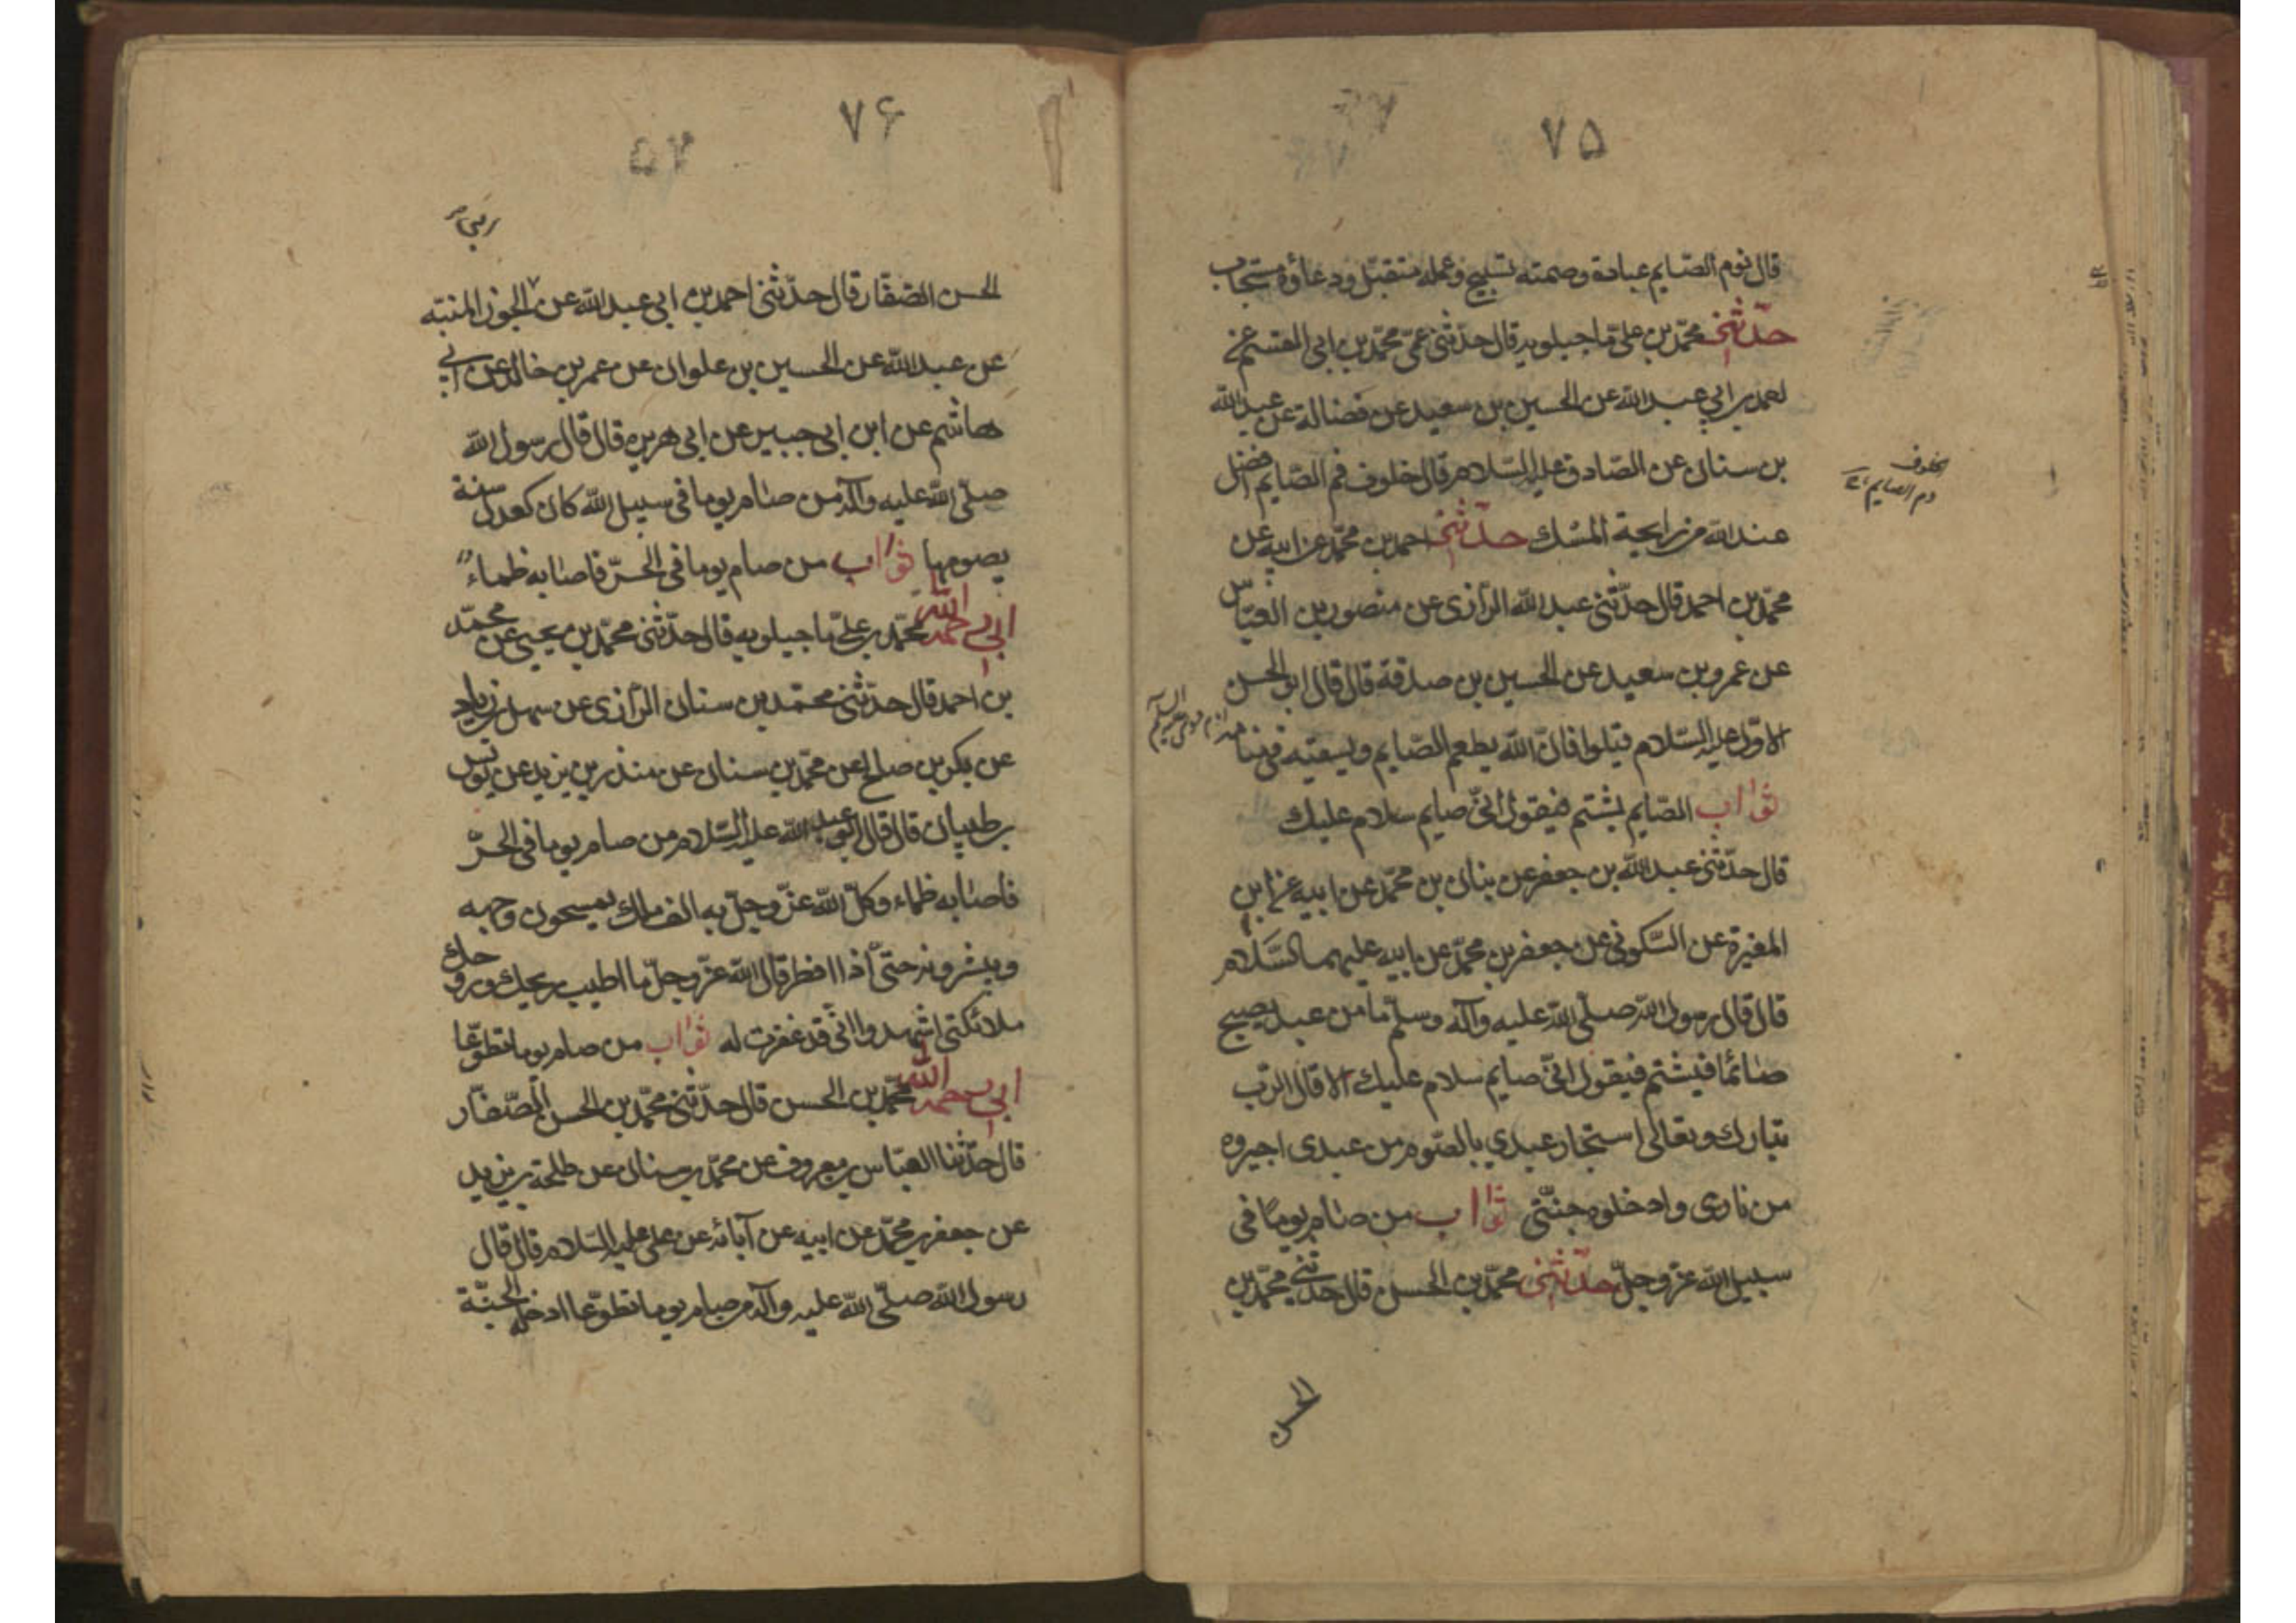 ٧٥
قال نوم الصّايم عبادة وصمته تسبيح وعمله متقبّل ودعاؤه مستجاب
حدّثنى محمّد بن علىّ ماجيلويه قال حدّثنى عمّى محمّد بن ابى القسم عن
احمد بن ابي عبد الله عن الحسين بن سعيد عن فضالة عن عبد الله
بن سنان عن الصّادق عليه السّلام قال خلوف فم الصّايم افضل
عند الله من رايحة المسك حدّثنى احمد بن محمّد عن ابيه عن
محمّد بن احمد قال حدّثنى عبد الله الرّازى عن منصور بن العبّاس
عن عمرو بن سعيد عن الحسين بن صدقة قال قال ابو الحسن
الاوّل عليه السّلام قيلوا فانّ الله يطعم الصّايم ويسقيه فى منامه
ثواب الصّايم يشتم فيقول انّى صايم سلام عليك
قال حدّثنى عبد الله بن جعفر عن بنان بن محمّد عن ابيه عن ابن
المغيرة عن السّكونى عن جعفر بن محمّد عن ابيه عليهما السّلام
قال قال رسول الله صلّى الله عليه وآله وسلّم ما من عبد يصبح
صائما فيشتم فيقول انّى صايم سلام عليك الا قال الرّب
تبارك وتعالى استجار عبدي بالصّوم من عبدى اجيروه
من نارى وادخلوه جنّتى ثواب من صام يوما فى
سبيل الله عزّ وجلّ حدّثنى محمّد بن الحسن قال حدّثنى محمّد بن
الحسن
٧۶
الحسن الصّفّار قال حدّثنى احمد بن ابى عبد الله عن ابى الجوزا المنبّه
عن عبد الله عن الحسين بن علوان عن عمر بن خالد عن ابى
هاشم عن ابن ابى جبير عن ابى هريره قال قال رسول الله
صلّى الله عليه وآله من صام يوما فى سبيل الله كان كعدل سنة
يصومها ثواب من صام يوما فى الحرّ فاصابه ظماء
ابى رحمه الله محمّد بن علىّ ماجيلويه قال حدّثنى محمّد بن يحيى عن محمّد
بن احمد قال حدّثنى محمّد بن سنان الرّازى عن سهل بن زياد
عن بكر بن صالح عن محمّد بن سنان عن منذر بن يزيد عن يونس
بن ظبيان قال قال ابو عبد الله عليه السّلام من صام يوما فى الحرّ
فاصابه ظماء وكّل الله عزّ وجلّ به الف ملك يمسحون وجهه
ويبشرونه حتّى اذا افطر قال الله عزّ وجلّ ما اطيب ريحك وروحك
ملائكتى اشهدوا انّى قد غفرت له ثواب من صام يوما تطوّعا
ابى رحمه الله محمّد بن الحسن قال حدّثنى محمّد بن الحسن الصّفّار
قال حدّثنا العبّاس بن معروف عن محمّد بن سنان عن طلحة بن يزيد
عن جعفر بن محمّد عن ابيه عن آبائه عن على عليه السّلام قال قال
رسول الله صلّى الله عليه وآله من صام يوما تطوّعا ادخله الجنّة